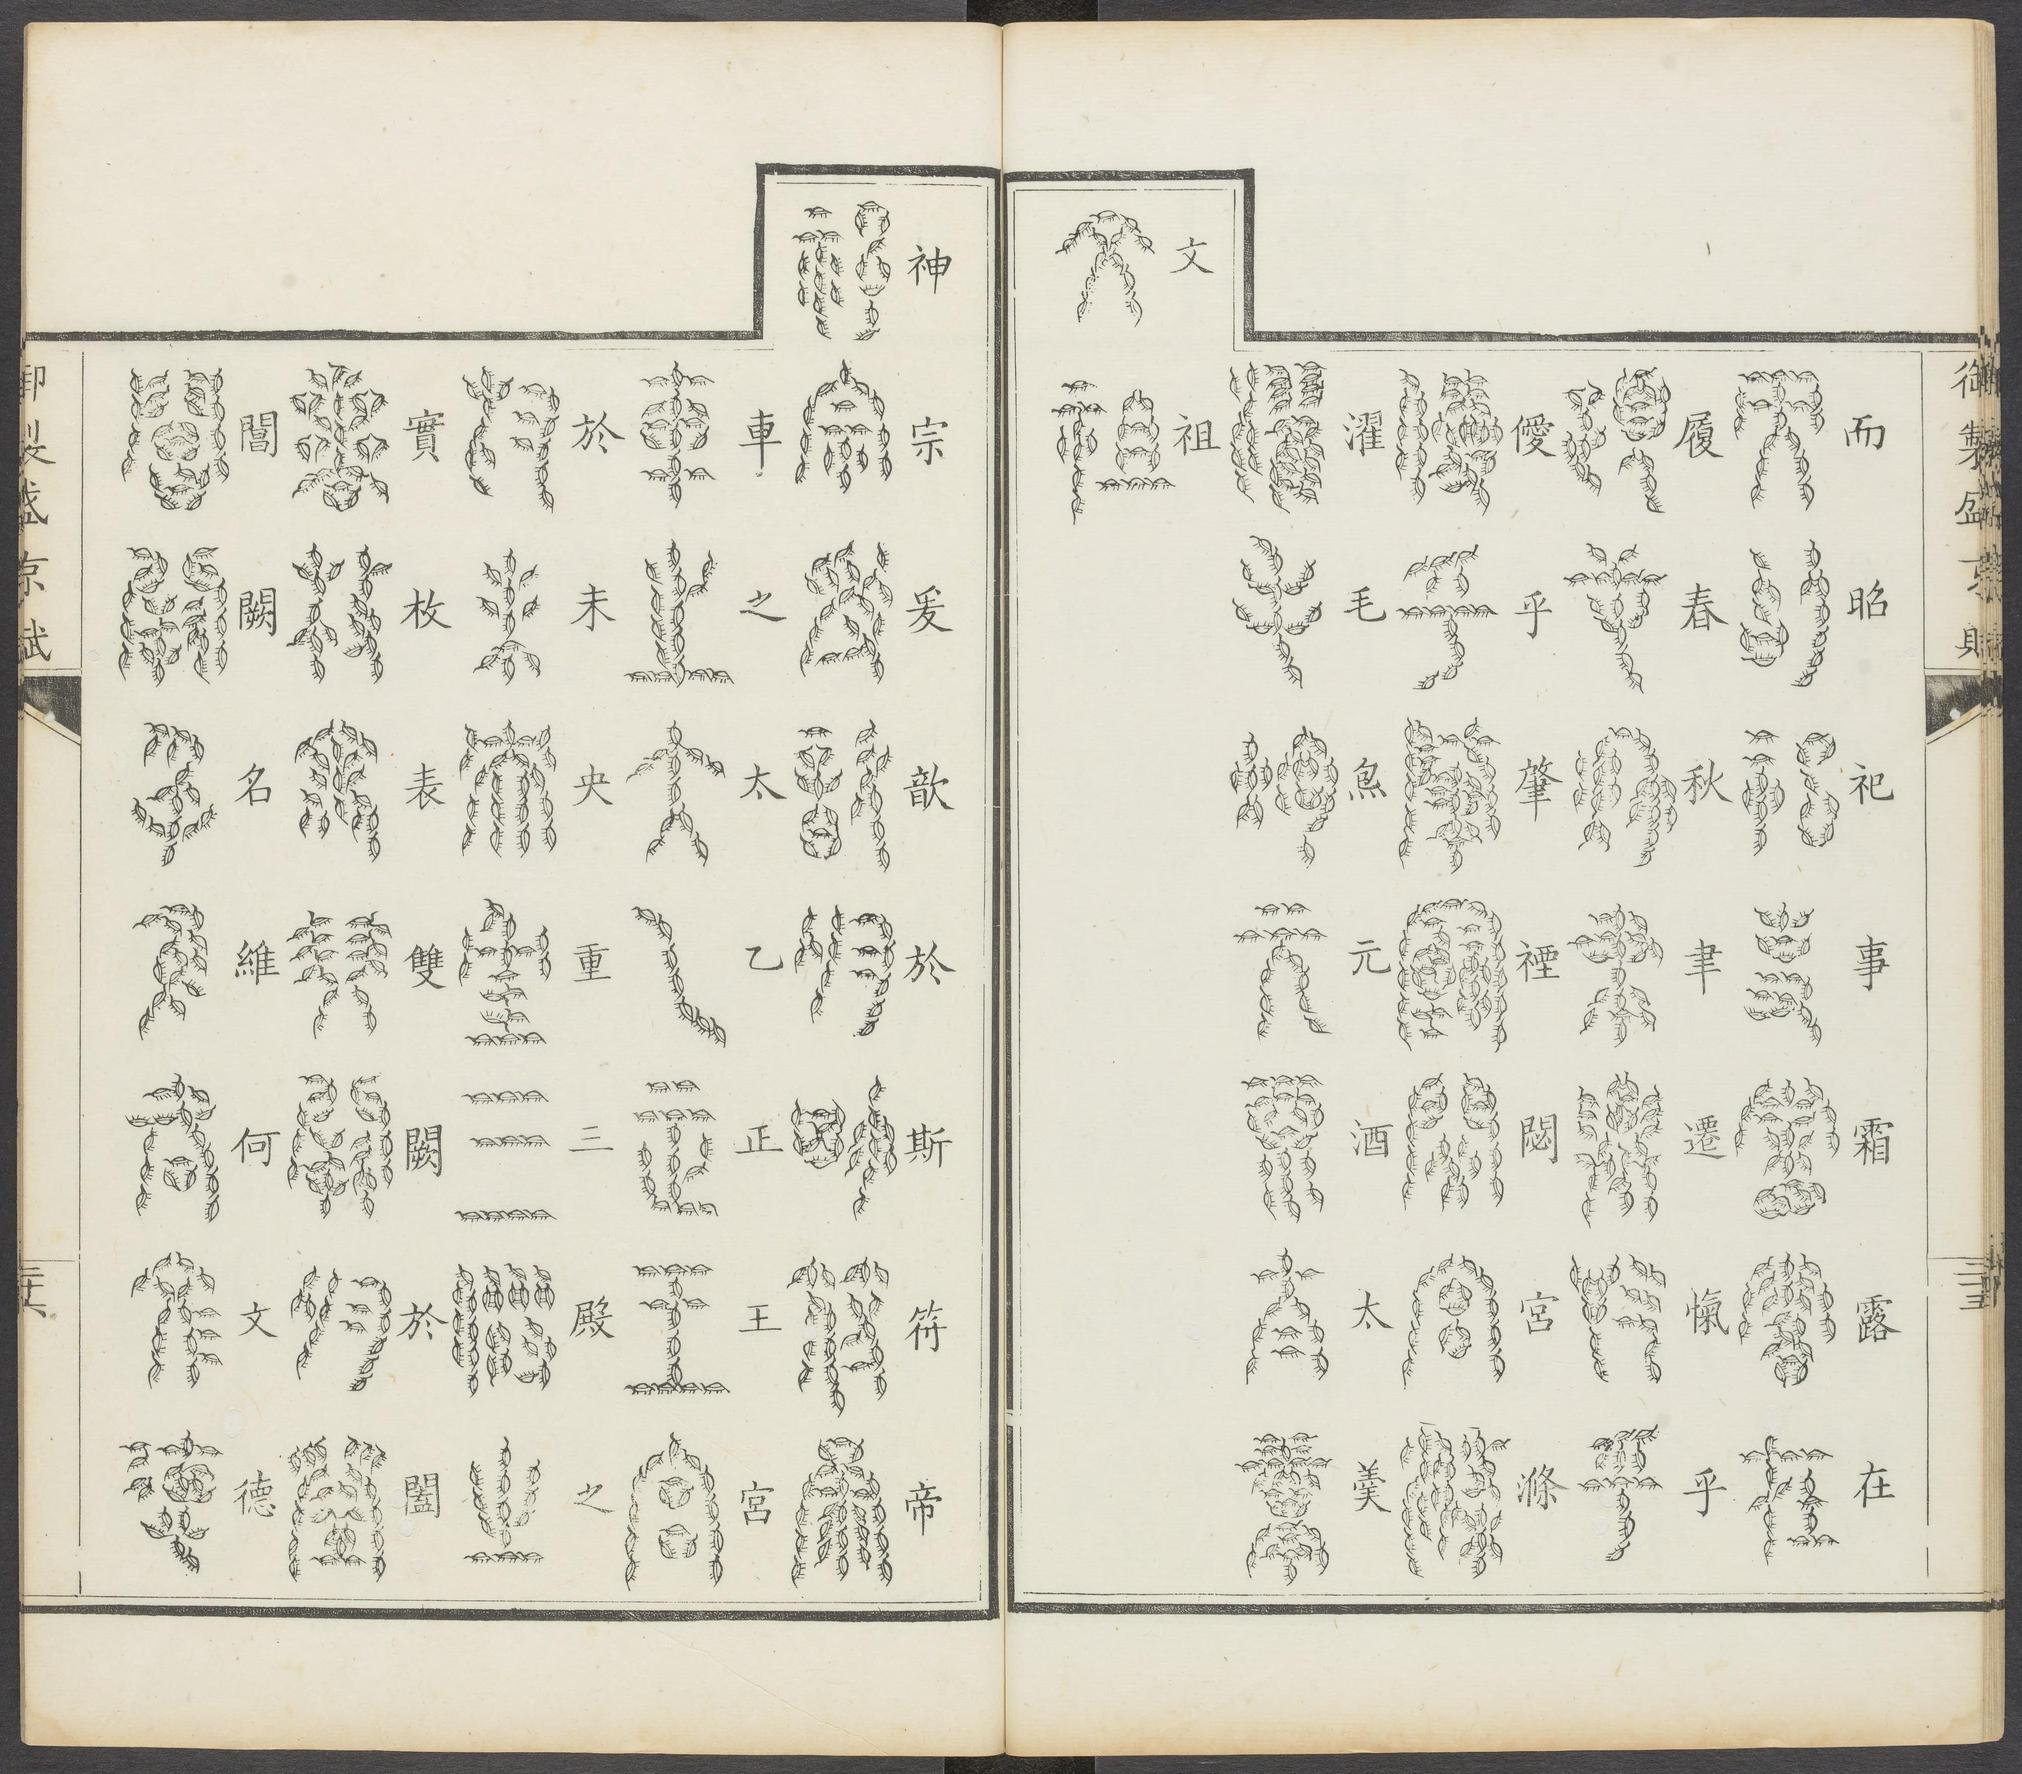 御製盛京賦
而昭祀事霜露在
履春秋聿遷愾乎
僾乎肇禋閟宮滌
濯毛炰元酒太羹
文祖
神宗爰歆於斯符帝
車之太乙正王宮
於未央重三殿之
實枚表雙闕於闔
閶闕名維何文德
御製盛京賦